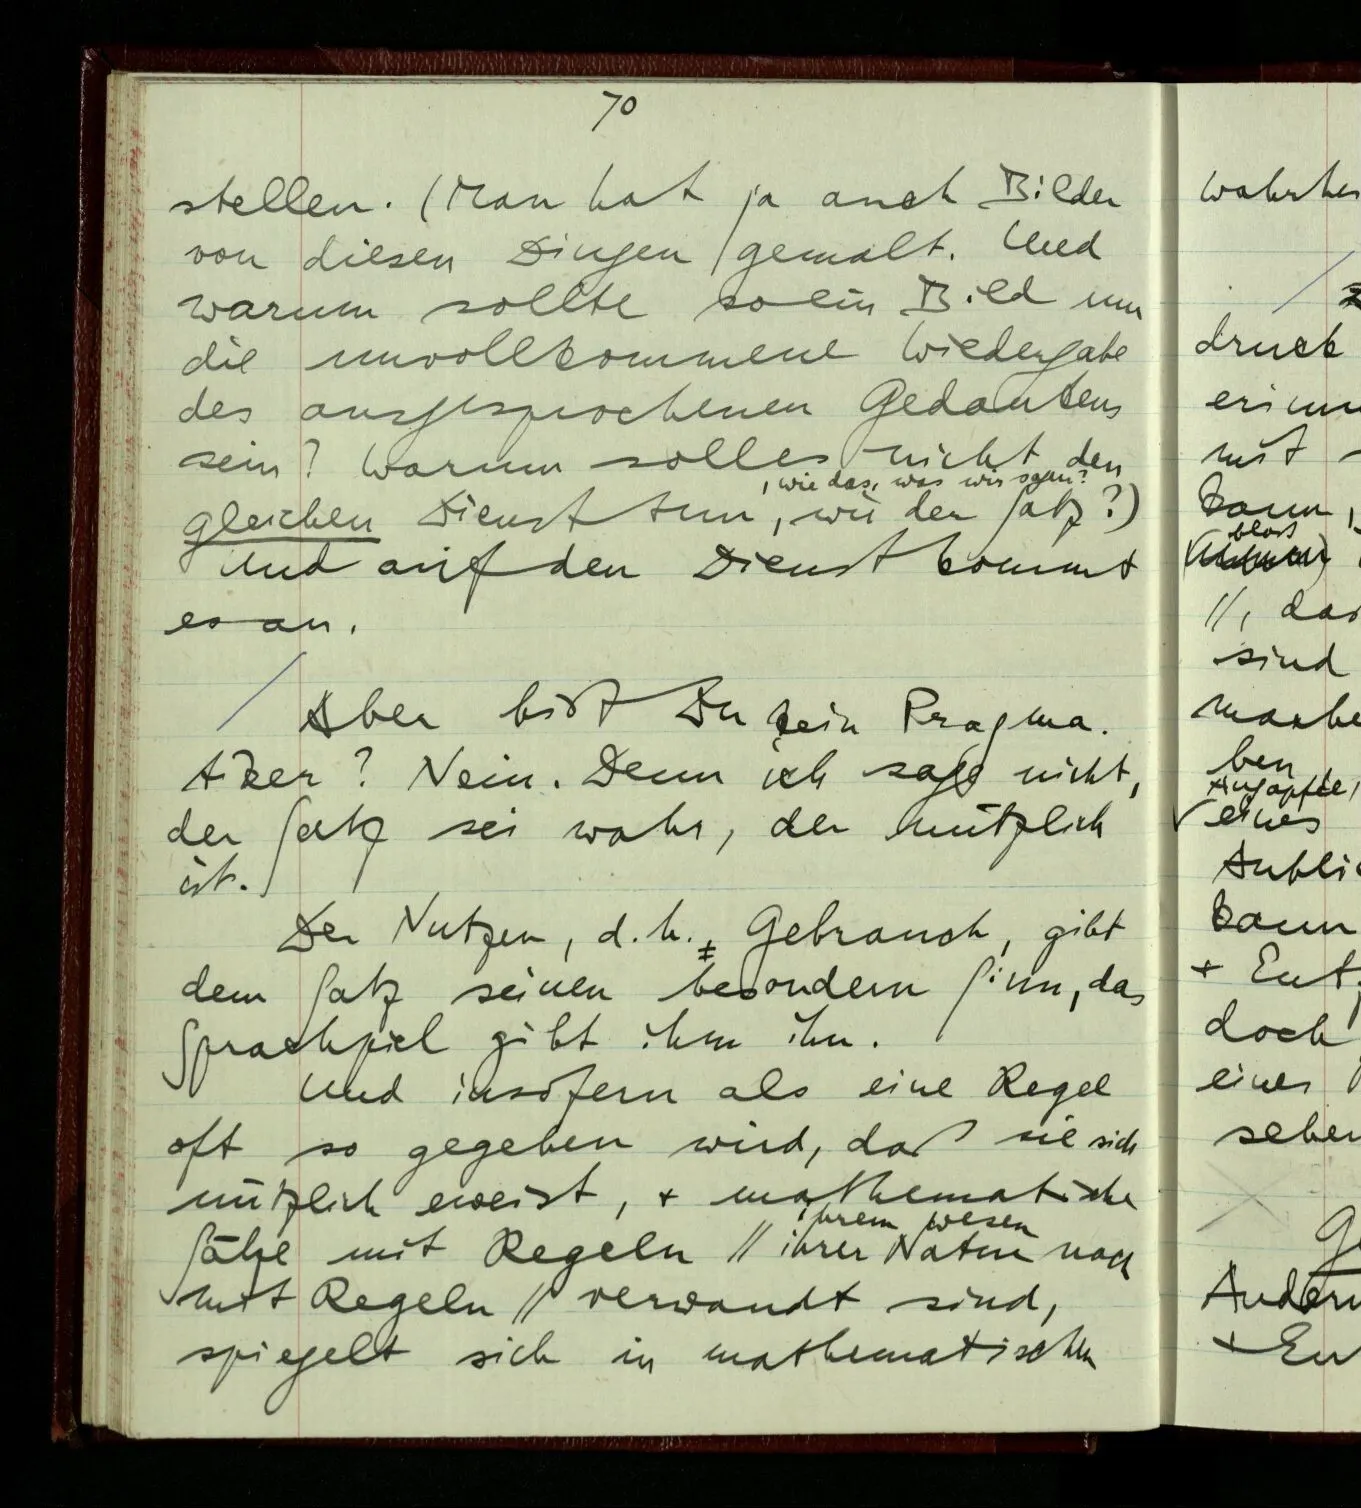 70
stellen. (Man hat ja auch Bilder
von diesen Dingen gemalt. Und
warum sollte so ein Bild nur
die unvollkommene Wiedergabe
des ausgesprochenen Gedankens
sein? Warum soll es nicht den
, wie das, was wir sagen?
gleichen Dienst tun, wie der Satz?)
Und auf den Dienst kommt
es an.
Aber bist Du kein Pragma-
tiker? Nein. Denn ich sage nicht,
der Satz sei wahr, der nützlich
ist.
Der Nutzen, d.h., Gebrauch, gibt
dem Satz seinen besondern Sinn, das
Sprachspiel gibt ihm ihn.
Und insofern als eine Regel
oft so gegeben wird, daß sie sich
nützlich erweist, + mathematische
ihrem Wesen
Sätze mit Regeln // ihrer Natur nach
mit Regeln // verwandt sind,
spiegelt sich in mathematischen
druck
mit
kann,
bloß
//, das
sind
ben
Augäpfel,
eines
kann
doch
eines